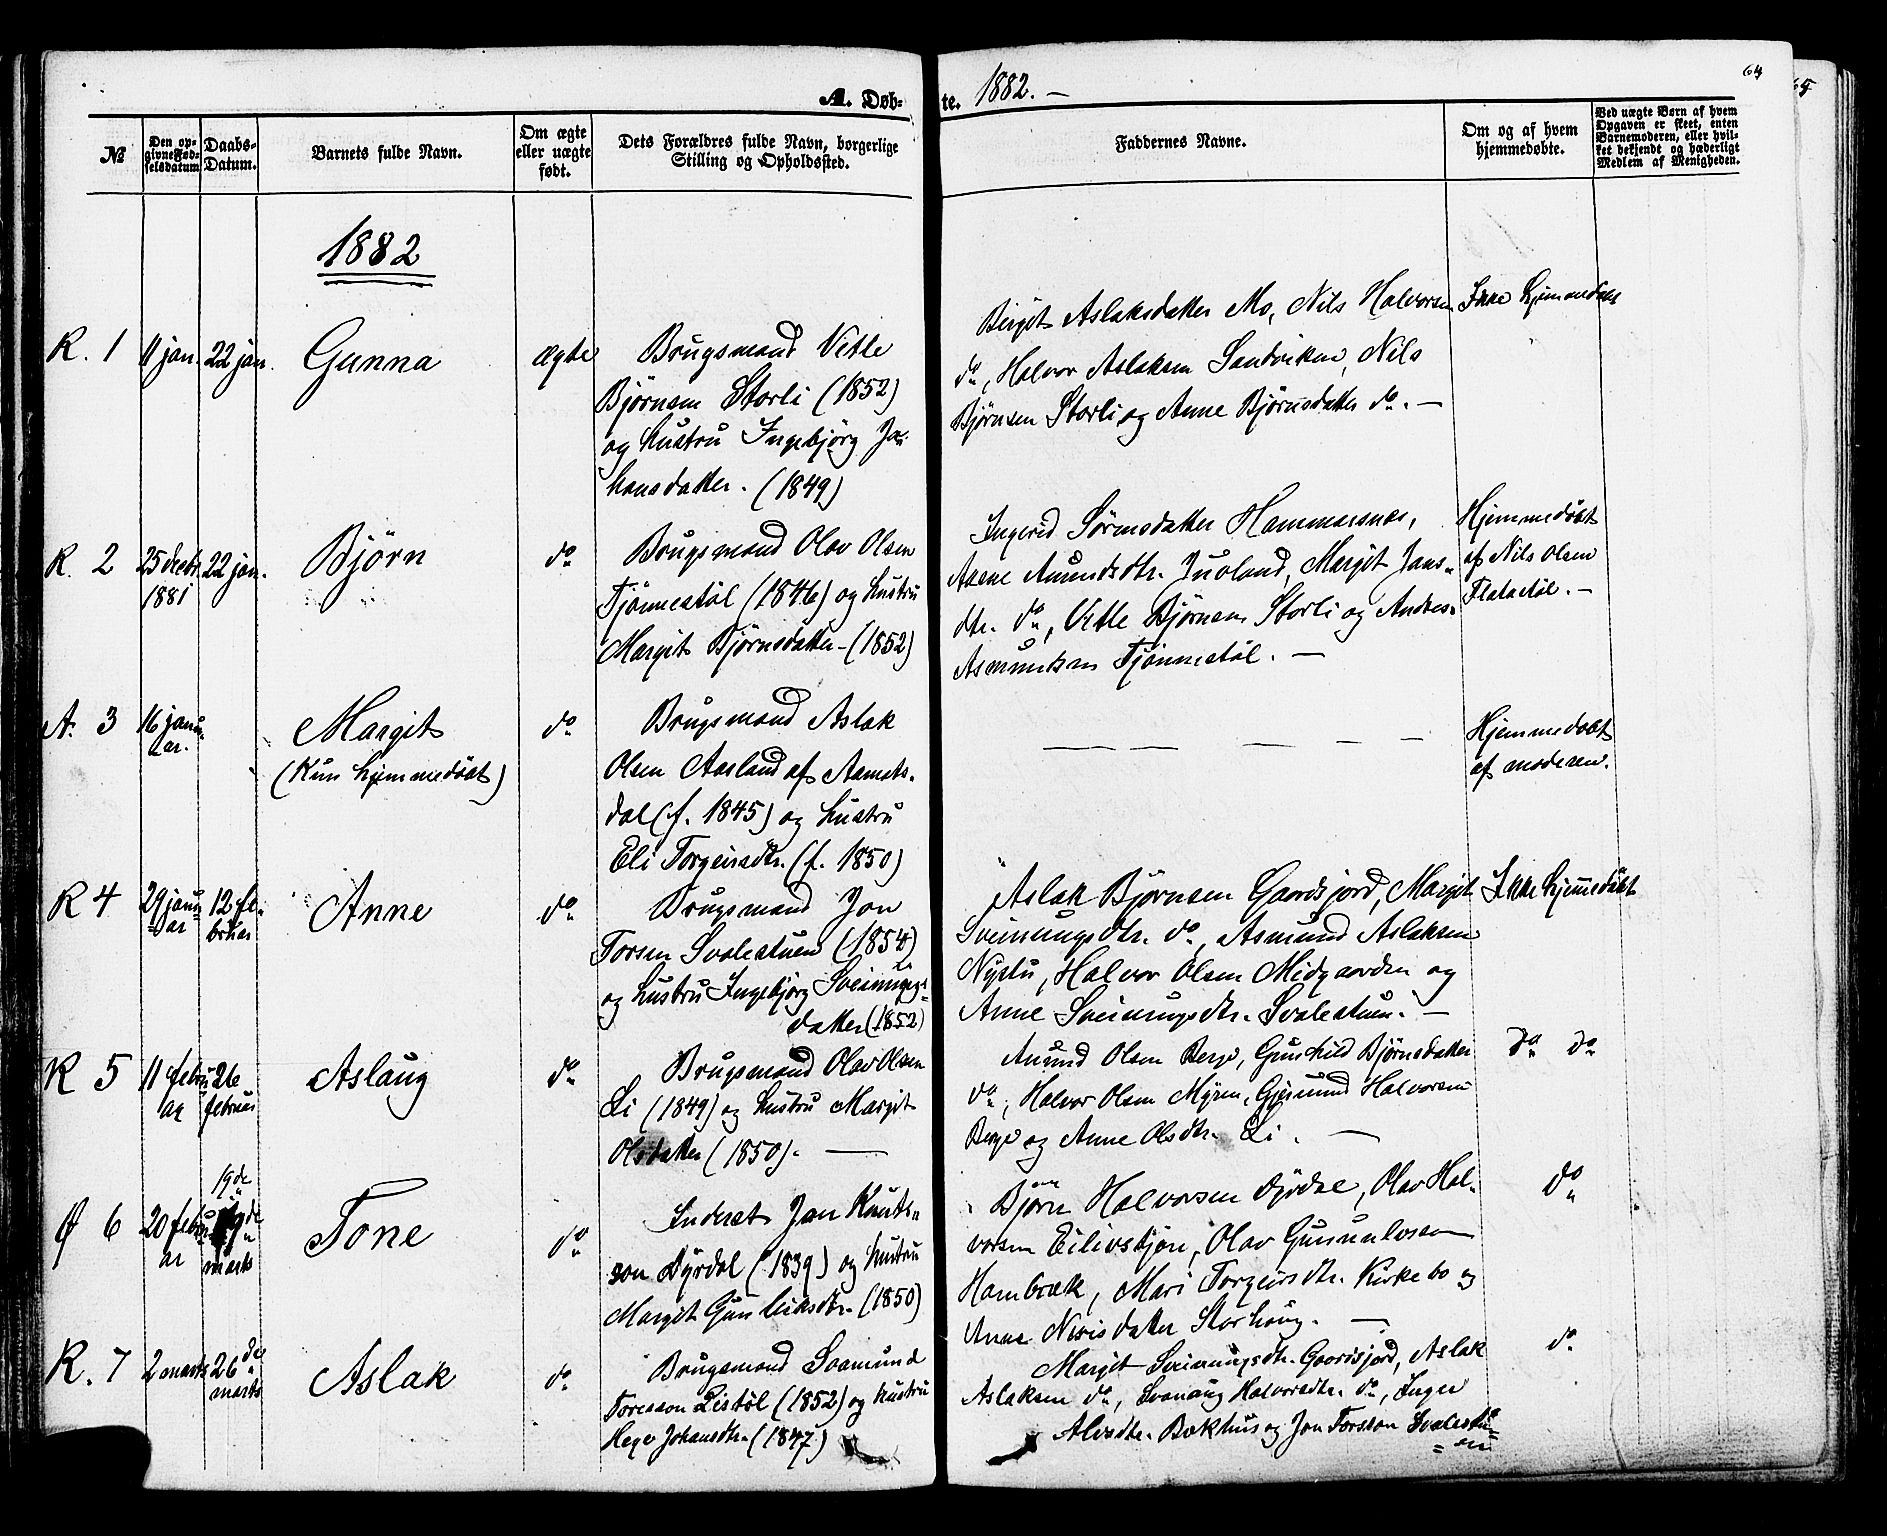 A. Døb-
te. 1882. —
64
65
№
Den op-
givne Fød-
selsdatum
Daabs-
Datum.
Barnets fulde Navn.
Om ægte
eller uægte
født.
Dets Forældres fulde Navn, borgerlige
Stilling og Opholdssted.
Faddernes Navne.
Om og af hvem
hjemmedøbte.
Ved uægte Børn af hvem
Opgaven er skeet, enten
Barnemoderen, eller hvil-
ket bekjendt og hæderligt
Medlem af Menigheden.
1882
R. 1
11 jan.
22 jan.
Gunna
ægte
Brugsmand Vetle
Bjørnsen Storli (1852)
og hustru Ingebjörg Jo-
hansdatter. (1849)
Birgit Aslaksdatter Mo, Nils Halvorsen
do, Halvor Aslaksen Sandviken, Nils
Bjørnsen Storli og Anne Bjørnsdatter do. —
Ikke hjemmedøbt
R. 2
25 decbr.
1881
22 jan.
Bjørn
do
Brugsmand Olav Olsen
Tjønnestøl (1846) og hustru
Margit Bjørnsdatter - (1852)
Ingerid Sørensdatter Hammersnes,
Anne Amundsdtr. Juvland, Margit Jans-
dtr. do, Vetle Bjørnsen Storli og Andres
Asmundsen Tjønnestøl. —
Hjemmedøbt
af Nils Olsen
Flatastøl. —
A. 3
16 janu-
ar.
Margit
(Kun hjemmedøbt)
do
Brugsmand Aslak
Olsen Aasland af Aamots-
dal (f. 1845) og hustru
Eli Torgeirsdtr. (f. 1850)
— — — — — —
Hjemmedøbt
af moderen.
R 4
29 janu-
ar
12 fe-
bruar
Anne
do
Brugsmand Jon
Torsen Svalestuen (1854)
og hustru Ingebjörg Sveinungs-
datter (1852)
Aslak Bjørnsen Gaardsjord, Margit
Sveinungsdtr. do, Asmund Aslaksen
Nystu, Halvor Olsen Midgaarden og
Anne Sveinungsdtr. Svalestuen. —
Ikke hjemmedøbt
R 5
11 febru
ar
26
februar
Aslaug
do
Brugsmand Olav Olsen
Li (1849) og hustru Margit
Olsdatter (1850). —
Amund Olsen Berge, Gunhild Bjørnsdatter
do, Halvor Olsen Myren, Gjermund Halvorsen
Berge og Anne Olsdtr. Li. —
do do
Ø 6
20 febru
ar
19de
marts
Tone
do
Inderst Jon Knuts-
son Dyrdal (1839) og hustru
Margit Gunleiksdtr. (1850)
Bjørn Halvorsen Dyrdal, Olav Hal-
vorsen Eilivstjøn, Olav
Hambræk, Mari Torgeirsdtr. Kirkebo og
Anne datter Storhaug. —
do
R. 7
2 marts
26de
marts
Aslak
do
Brugsmand Svamund
Toresson Listøl (1852) og hustru
Hege Johansdtr. (1847)
Margit Sveinungsdtr. Gaardsjord, Aslak
Aslaksen do, Svanaug Halvorsdtr. do, Inger
Alvsdtr. Bækhus og Jon Torsson Svalestu-
en